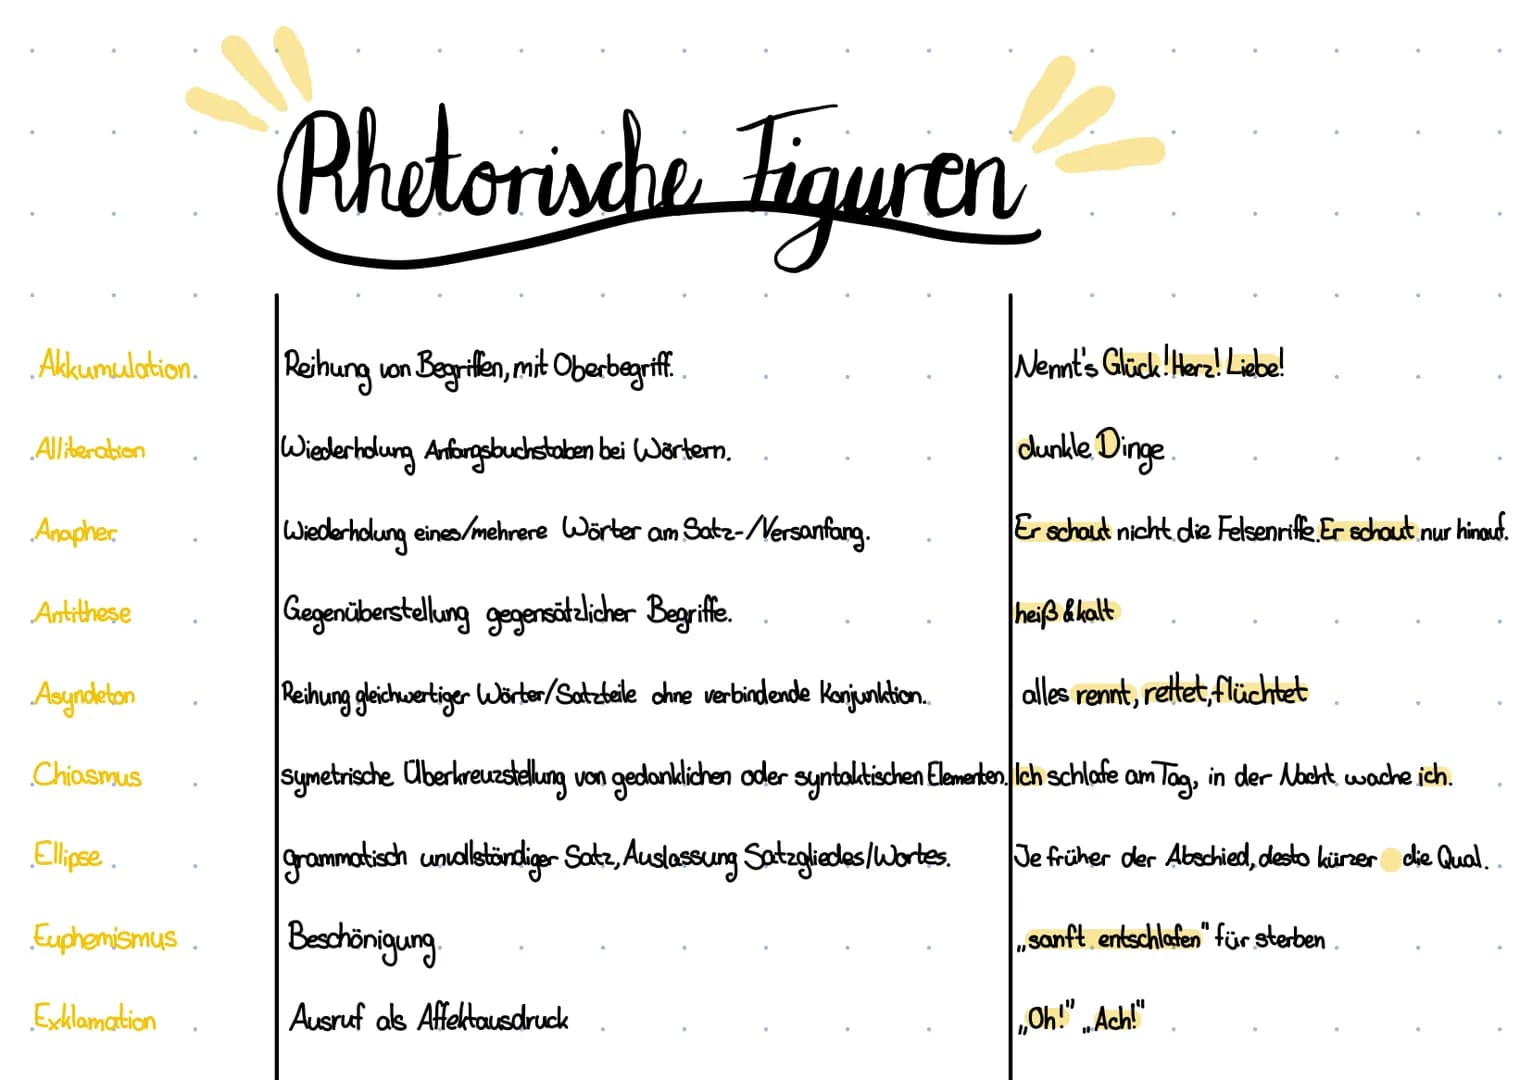 Rhetorische Figuren
Akkumulation. Reihung von Begriffen, mit Oberbegriff. Nennt's Glück! Herz! Liebe!
Alliteration Wiederholung Anfangsbuchstaben bei Wörtern. dunkle Dinge
Anapher Wiederholung eines/mehrere Wörter am Satz-/Versanfang. Er schaut nicht die Felsenriffe. Er schaut nur hinauf.
Antithese Gegenüberstellung gegensätzlicher Begriffe. heiß & kalt
Asyndeton Reihung gleichwertiger Wörter/Satzteile ohne verbindende Konjunktion. alles rennt, rettet, flüchtet
Chiasmus symetrische Überkreuzstellung von gedanklichen oder syntaktischen Elementen. Ich schlafe am Tag, in der Nacht wache ich.
Ellipse grammatisch unvollständiger Satz, Auslassung Satzgliedes/Wortes. Je früher der Abschied, desto kürzer die Qual.
Euphemismus Beschönigung „sanft entschlafen" für sterben
Exklamation Ausruf als Affektausdruck „Oh!" „Ach!"